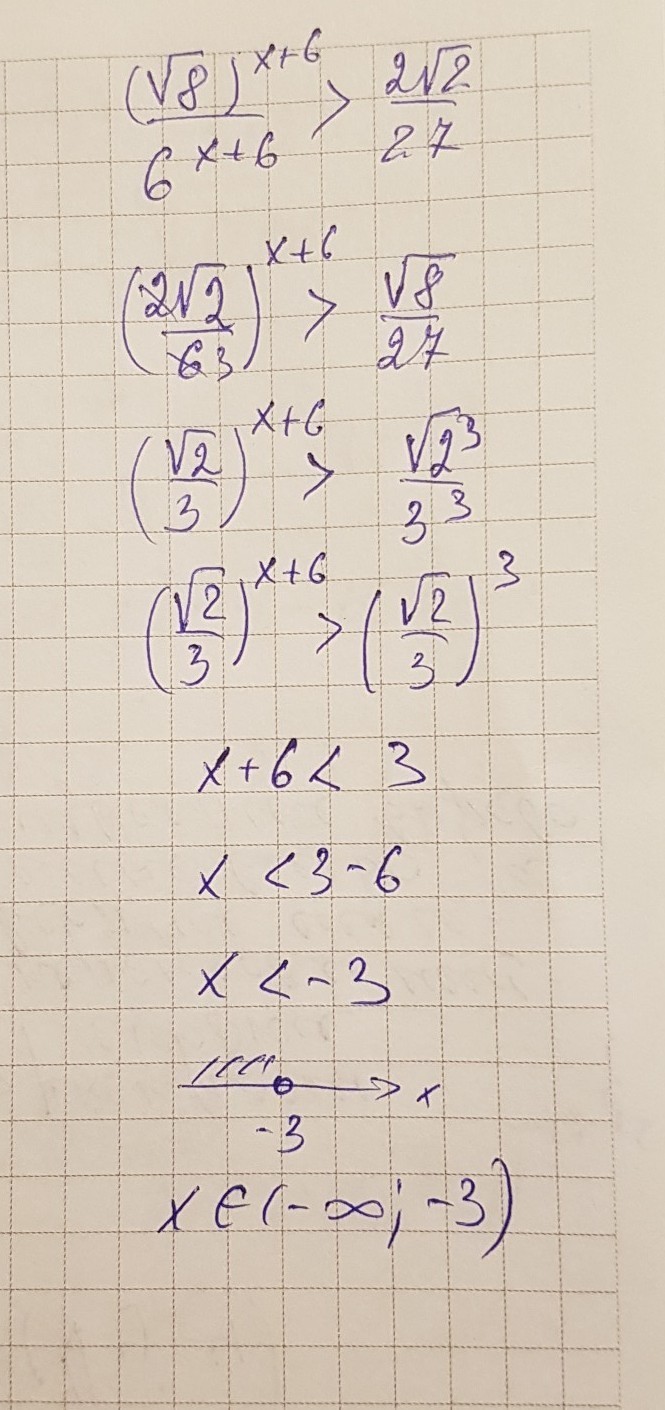 (√8)^(x+6) / 6^(x+6) > 2√2 / 27
(2√2 / 63)^(x+6) > √8 / 27
(√2 / 3)^(x+6) > √2^3 / 3^3
(√2 / 3)^(x+6) > (√2 / 3)^3
x+6 < 3
x < 3-6
x < -3
x
-3
x ∈ (-∞; -3)